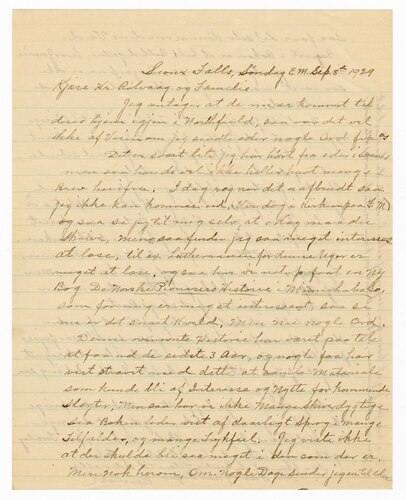 Sioux Falls, Søndag E.M. Sep. 8th 1929
Kjære Hr. Rølvaag og Familie.
Jeg antager at de nu er kommet til
dres hjem igjen i Northfield, saa var det vel
ikke af Veien om jeg sendte eder nogle Ord fra os
Det er svært lite jeg har hørt fra eder i Sommer
men saa har de vel ikke heller havt mange
Brev herifra. I dag regner det uafbrudt saa
jeg ikke kan komme ud, (Var dog i Kirken paa F.M.)
og saa sa jeg til mig selv, at idag maa du
skrive, men saa finder jeg saa meget interessant
at læse, til ex. Lutheraneren for denne Uge er
meget at læse, og saa har vi netop faat en Ny
Bog De Norske Pioneers Historie i Minnehaha Co,
som for mig er meget interessant, saa se
nu er det snart Kveld, Men Nu Nogle Ord.
Denne omskrevne Historie har været paa tale
at faa ud de sidste 3 Aar, og nogle faa har
vist strævt med dette at samle Materiale
som kunde bli af Interesse og Nytte for kommende
Slægter, Men saa har vi ikke Mange Skrivedygtige
saa Boken leder vist af daarligt Sprog i mange
Tilfælder, og mange Trykfeil. Jeg viste ikke
at der skulde bli saa meget i den som der er.
Men Nok herom, Om Nogle Dage sender jeg en til